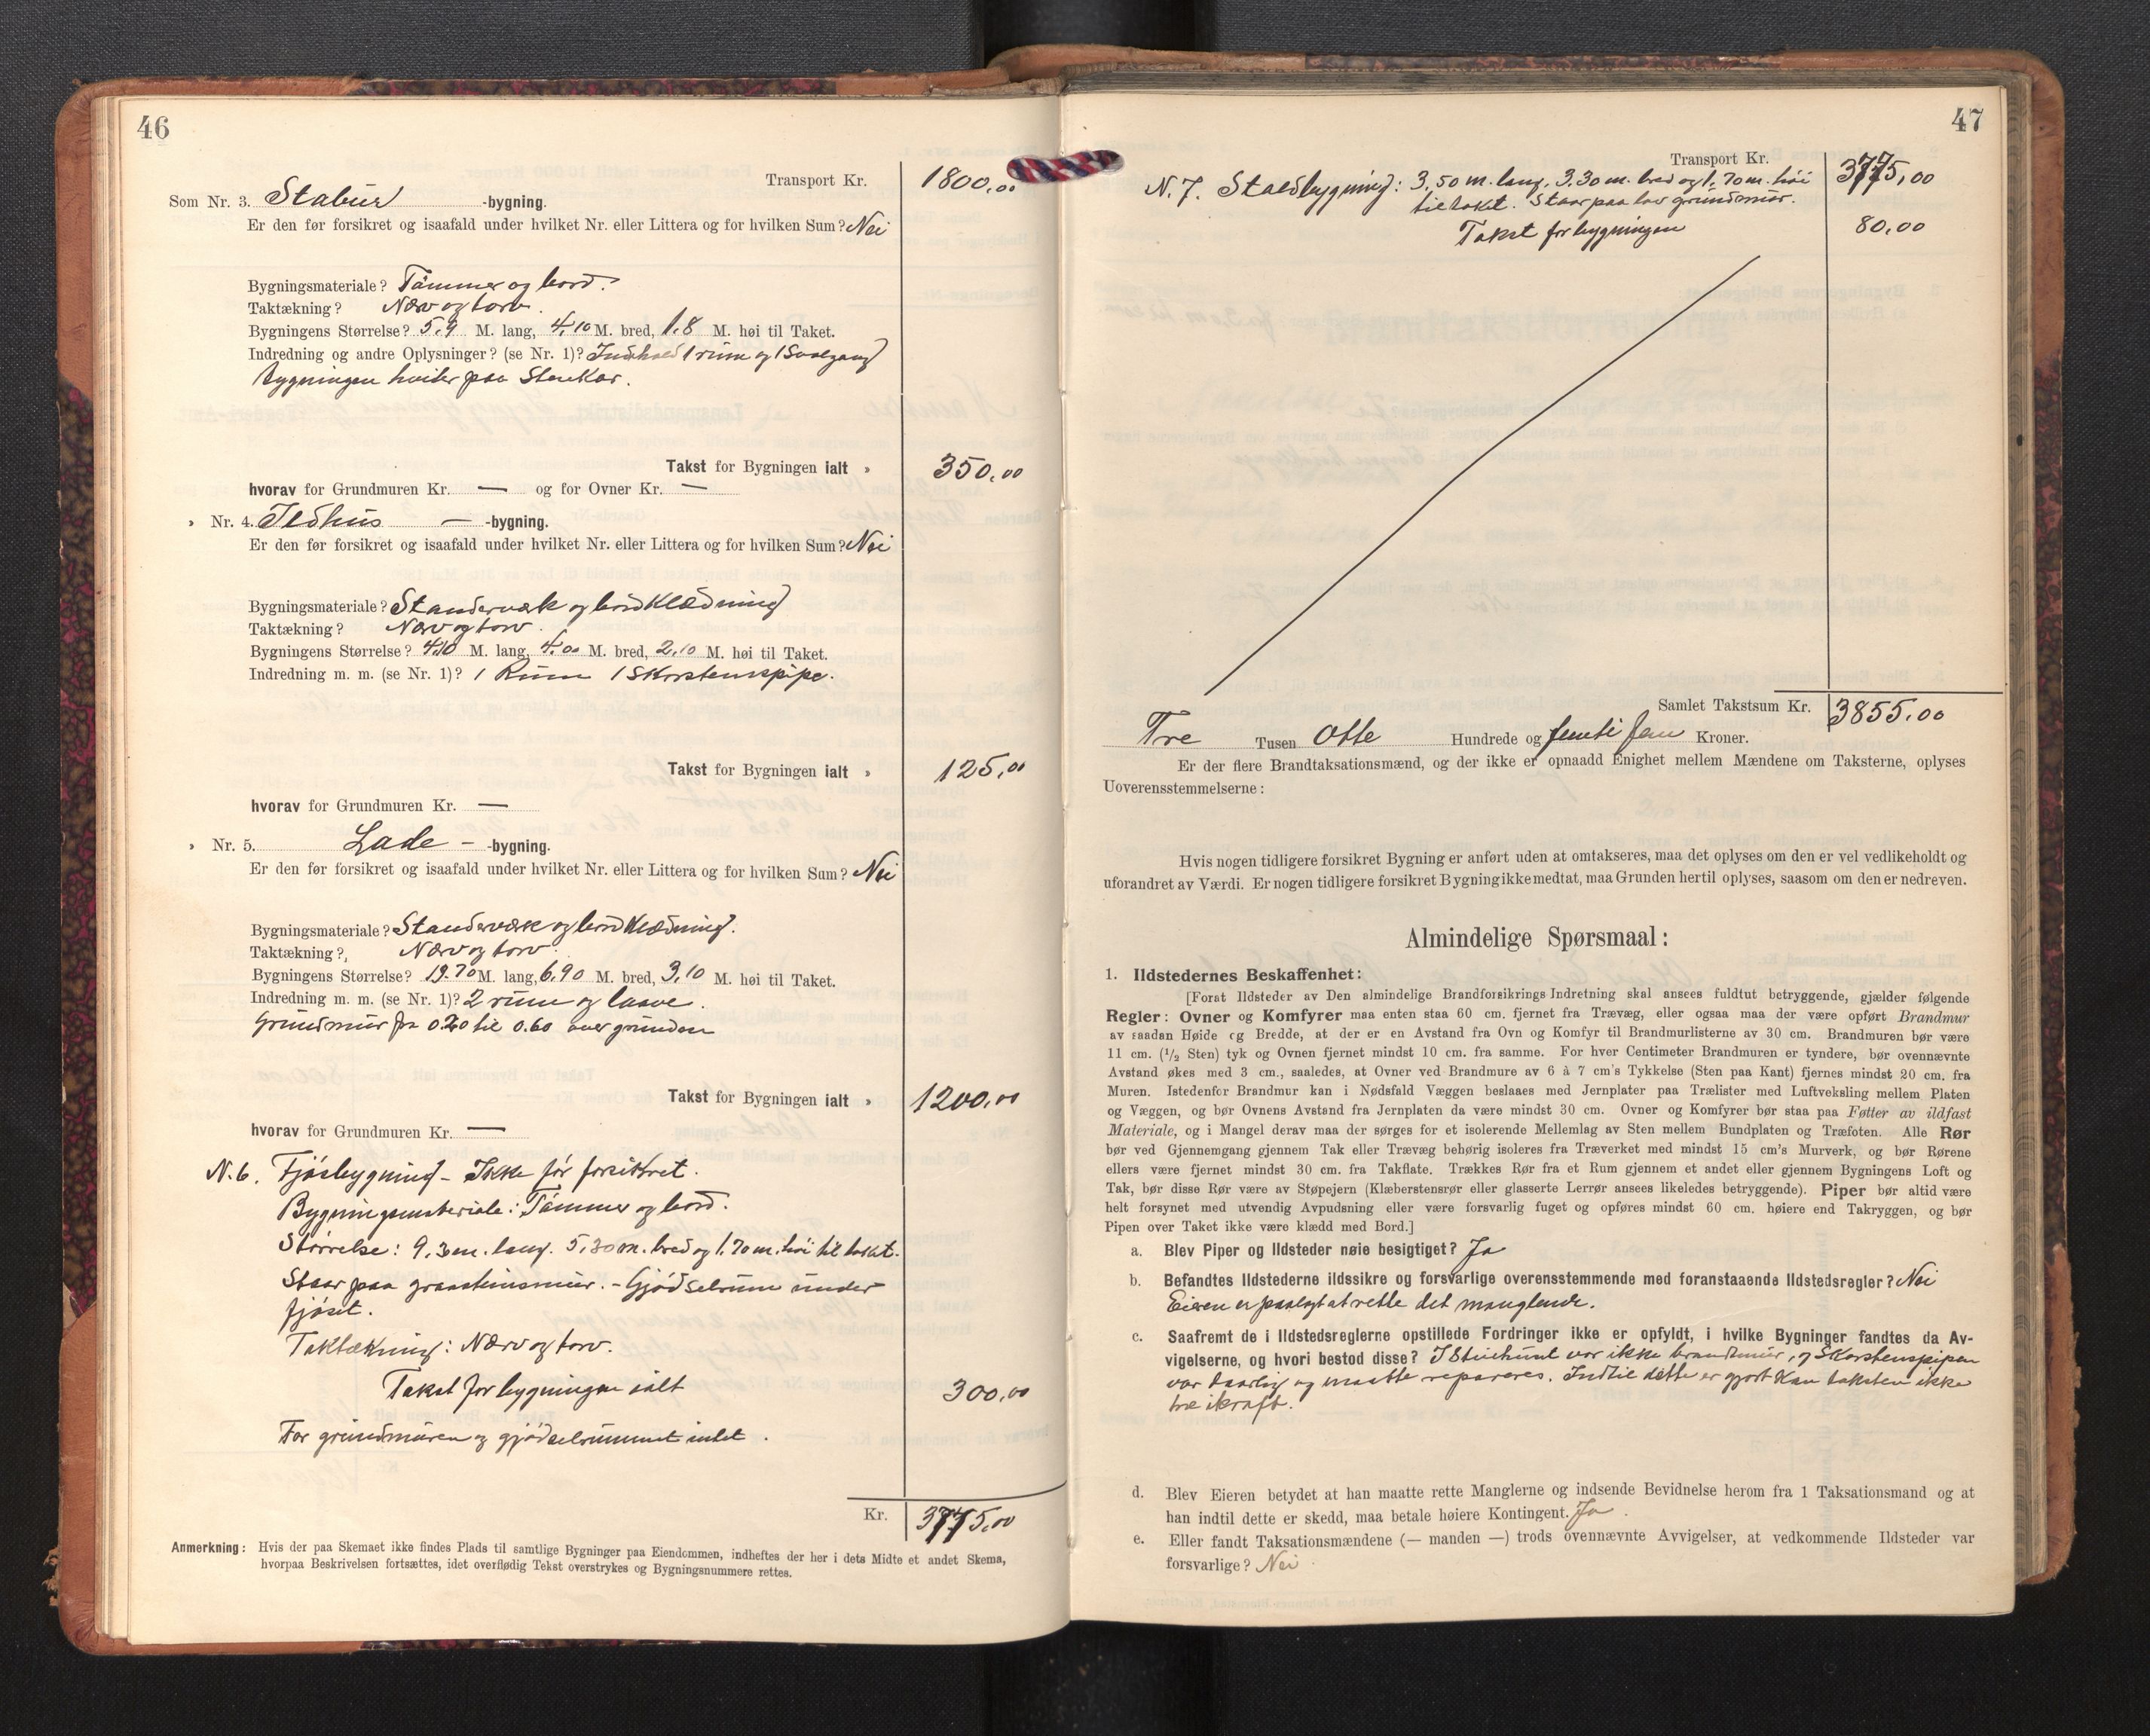 46
Transport Kr. 1800,00
Som Nr. 3. Stabur -bygning.
Er den før forsikret og isaafald under hvilket Nr. eller Littera og for hvilken Sum? Nei
Bygningsmateriale? Tømmer og bord.
Taktækning? Næver og torv.
Bygningens Størrelse? 5.9 M. lang, 4,10 M. bred, 1.8 M. høi til Taket.
Indredning og andre Oplysninger? (se Nr. 1)? Indhold 1 rum og 1 Svalgang
Bygningen hviler paa Stenkar.
Takst for Bygningen ialt » 350,00
hvorav for Grundmuren Kr. — og for Ovner Kr. —
» Nr. 4. Ildhus — -bygning.
Er den før forsikret og isaafald under hvilket Nr. eller Littera og for hvilken Sum? Nei
Bygningsmateriale? Standerværk og bordklædning
Taktækning? Næv og torv.
Bygningens Størrelse? 4,10 M. lang, 4,00 M. bred, 2,10 M. høi til Taket.
Indredning m. m. (se Nr. 1)? 1 Rum 1 Skorstenspipe.
Takst for Bygningen ialt » 125,00
hvorav for Grundmuren Kr. —
» Nr. 5. Lade — -bygning.
Er den før forsikret og isaafald under hvilket Nr. eller Littera og for hvilken Sum? Nei
Bygningsmateriale? Standerværk og bordklædning.
Taktækning? Næv og torv.
Bygningens Størrelse? 19.70 M. lang, 6,90 M. bred, 3,10 M. høi til Taket.
Indredning m. m. (se Nr. 1)? 2 rum og laave.
Grundmur fra 0.20 til 0.60 over grunden
Takst for Bygningen ialt » 1200,00
hvorav for Grundmuren Kr. —
N. 6. Fjøsbygning - Ikke før forsikret.
Bygningsmateriale: Tømmer og bord.
Størrelse: 9,30 m. lang. 5,30 m. bred og 1,70 m. høi til taket.
Staar paa graastensmur. - Gjødselrum under
fjøset.
Taktækning: Næv og torv.
Takst for bygningen ialt 300,00
For grundmuren og gjødselrummet intet.
Kr. 3775,00
Anmerkning: Hvis der paa Skemaet ikke findes Plads til samtlige Bygninger paa Eiendommen, indheftes der her i dets Midte et andet Skema,
hvorpaa Beskrivelsen fortsættes, idet overflødig Tekst overstrykes og Bygningsnummere rettes.
47
Transport Kr. 3775,00
N. 7. Staldbygning: 3,50 m. lang, 3.30 m. bred og 1,70 m. høi
til taket. Staar paa lav grundmur.
Takst for bygningen 80,00
Samlet Takstsum Kr. 3855,00
Tre Tusen Otte Hundrede og femti fem Kroner.
Er der flere Brandtaksationsmænd, og der ikke er opnaadd Enighet mellem Mændene om Taksterne, oplyses
Uoverensstemmelserne:
Hvis nogen tidligere forsikret Bygning er anført uden at omtakseres, maa det oplyses om den er vel vedlikeholdt og
uforandret av Værdi. Er nogen tidligere forsikret Bygning ikke medtat, maa Grunden hertil oplyses, saasom om den er nedreven.
Almindelige Spørsmaal:
1. Ildstedernes Beskaffenhet:
[Forat Ildsteder av Den almindelige Brandforsikrings Indretning skal ansees fuldtut betryggende, gjælder følgende
Regler: Ovner og Komfyrer maa enten staa 60 cm. fjernet fra Trævæg, eller ogsaa maa der være opført Brandmur
av saadan Høide og Bredde, at der er en Avstand fra Ovn og Komfyr til Brandmurlisterne av 30 cm. Brandmuren bør være
11 cm. (½ Sten) tyk og Ovnen fjernet mindst 10 cm. fra samme. For hver Centimeter Brandmuren er tyndere, bør ovennævnte
Avstand økes med 3 cm., saaledes, at Ovner ved Brandmure av 6 à 7 cm's Tykkelse (Sten paa Kant) fjernes mindst 20 cm. fra
Muren. Istedenfor Brandmur kan i Nødsfald Væggen beslaaes med Jernplater paa Trælister med Luftveksling mellem Platen
og Væggen, og bør Ovnens Avstand fra Jernplaten da være mindst 30 cm. Ovner og Komfyrer bør staa paa Føtter av ildfast
Materiale, og i Mangel derav maa der sørges for et isolerende Mellemlag av Sten mellem Bundplaten og Træfoten. Alle Rør
bør ved Gjennemgang gjennem Tak eller Trævæg behørig isoleres fra Træverket med mindst 15 cm's Murverk, og bør Rørene
ellers være fjernet mindst 30 cm. fra Takflate. Trækkes Rør fra et Rum gjennem et andet eller gjennem Bygningens Loft og
Tak, bør disse Rør være av Støpejern (Klæberstensrør eller glasserte Lerrør ansees likeledes betryggende). Piper bør altid være
helt forsynet med utvendig Avpudsning eller være forsvarlig fuget og opføres mindst 60 cm. høiere end Takryggen, og bør
Pipen over Taket ikke være klædd med Bord.]
a. Blev Piper og Ildsteder nøie besigtiget? Ja
b. Befandtes Ildstederne ildssikre og forsvarlige overensstemmende med foranstaaende Ildstedsregler? Nei
Eieren er paalagt at rette det manglende.
c. Saafremt de i Ildstedsreglerne opstillede Fordringer ikke er opfyldt, i hvilke Bygninger fandtes da Av-
vigelserne, og hvori bestod disse? I Stuehuset var ikke brandmur, og Skorstenspipen
var daarlig og maatte repareres. Indtil dette er gjort kan taksten ikke
træ ikraft.
d. Blev Eieren betydet at han maatte rette Manglerne og indsende Bevidnelse herom fra 1 Taksationsmand og at
han indtil dette er skedd, maa betale høiere Kontingent. Ja.
e. Eller fandt Taksationsmændene (— manden —) trods ovennævnte Avvigelser, at vedkommende Ildsteder var
forsvarlige? Nei